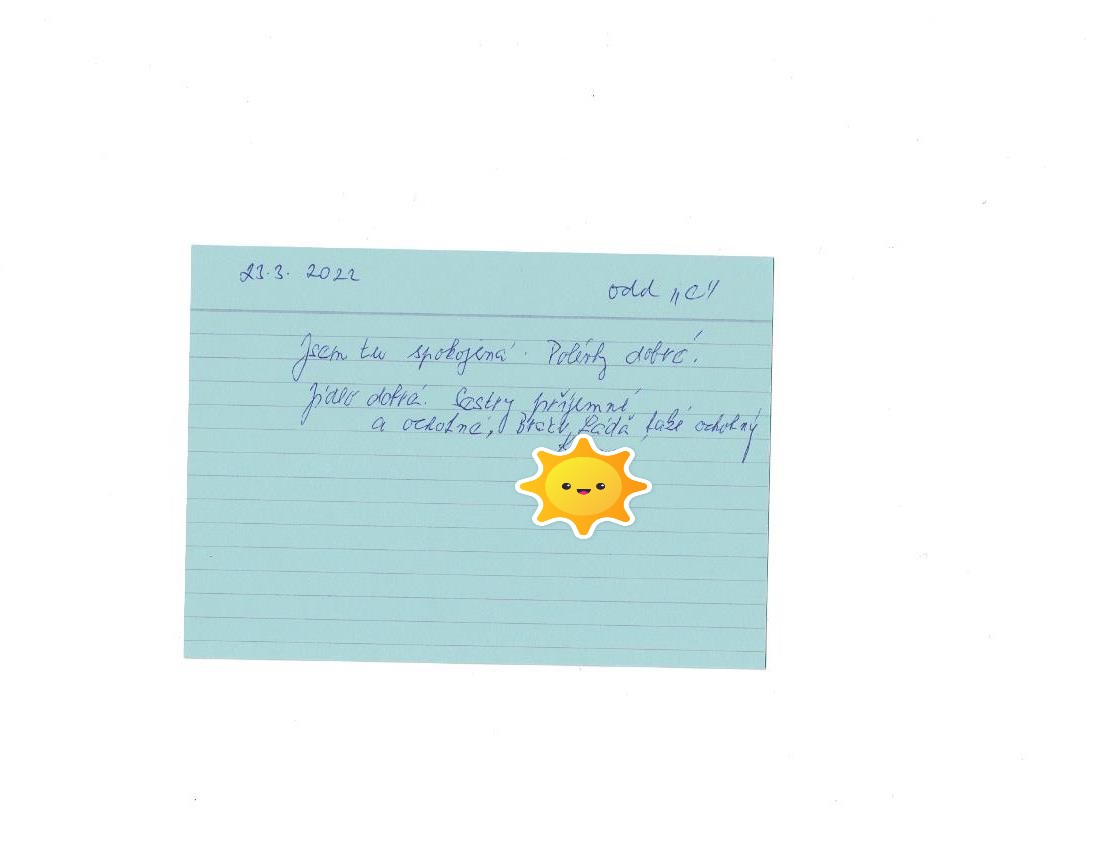 23.3. 2022
odd „C“
Jsem tu spokojená. Polévky dobré.
Jídlo dobré. Sestry příjemné
a ochotné, Bratr Láďa také ochotný